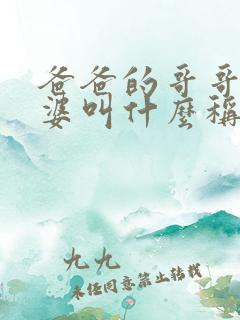 爸爸的哥哥
婆叫什麼稱
九九
未经同意禁止转载